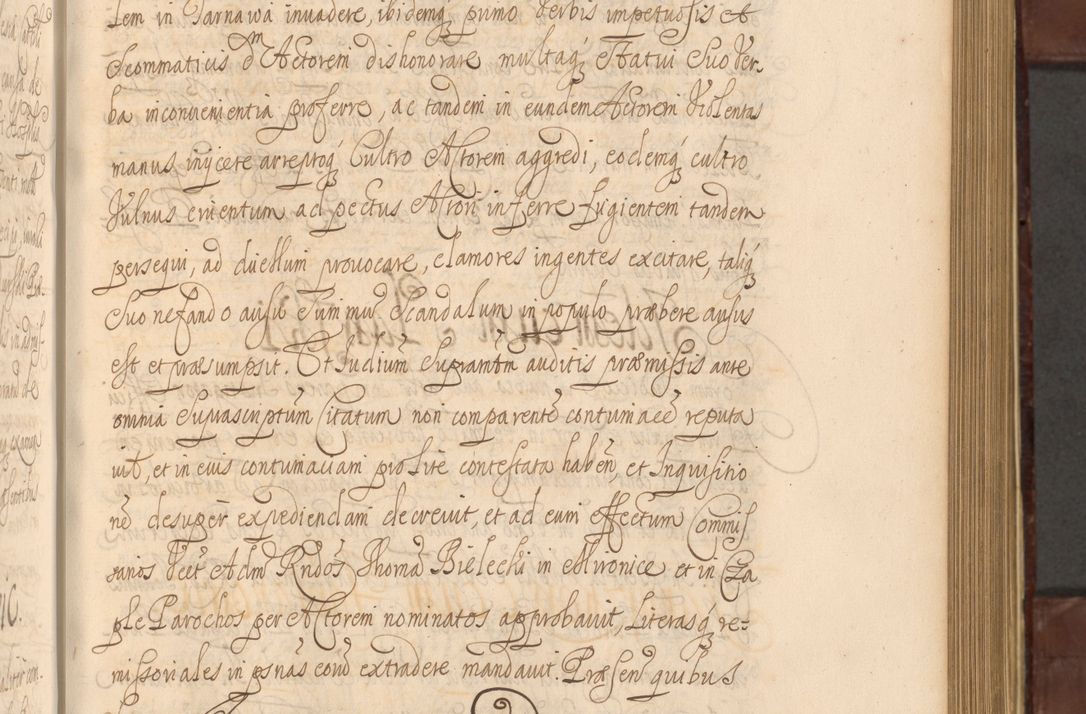 tem in Tarnawa invadere, ibidemq; primo verbis impetuosis et
Scommaticis Dm Actorem dishonorare multaq; Statui Suo Ver-
ba inconvenientia proferre, ac tandem in eundem Actorem Violentas
manus injicere arreptoq; Cultro Actorem aggredi, eodemq; cultro
Vulnus ad pectus Actori inferre fugientem tandem
persequi, ad duellum provocare, clamores ingentes excitare, taliq;
Suo nefando ausu Scandalum in populo præbere ausus
est et præsumpsit. Et Judicium Supramtm auditis præmissis ante
omnia Suprascriptum Citatum non comparente contumace reputa
vit, et in eius contumaciam pro Lite contestata haben et Inquisitio
ne desuper expediendam decrevit, et ad eum effectum Commis
sarios Adm Rndos Thoma Bielecki in Mironice et in Cza
ple Parochos per Actorem nominatos approbavit, Literasq; re-
missoriales in psnas eoru extradere mandavit. Præsen quibus